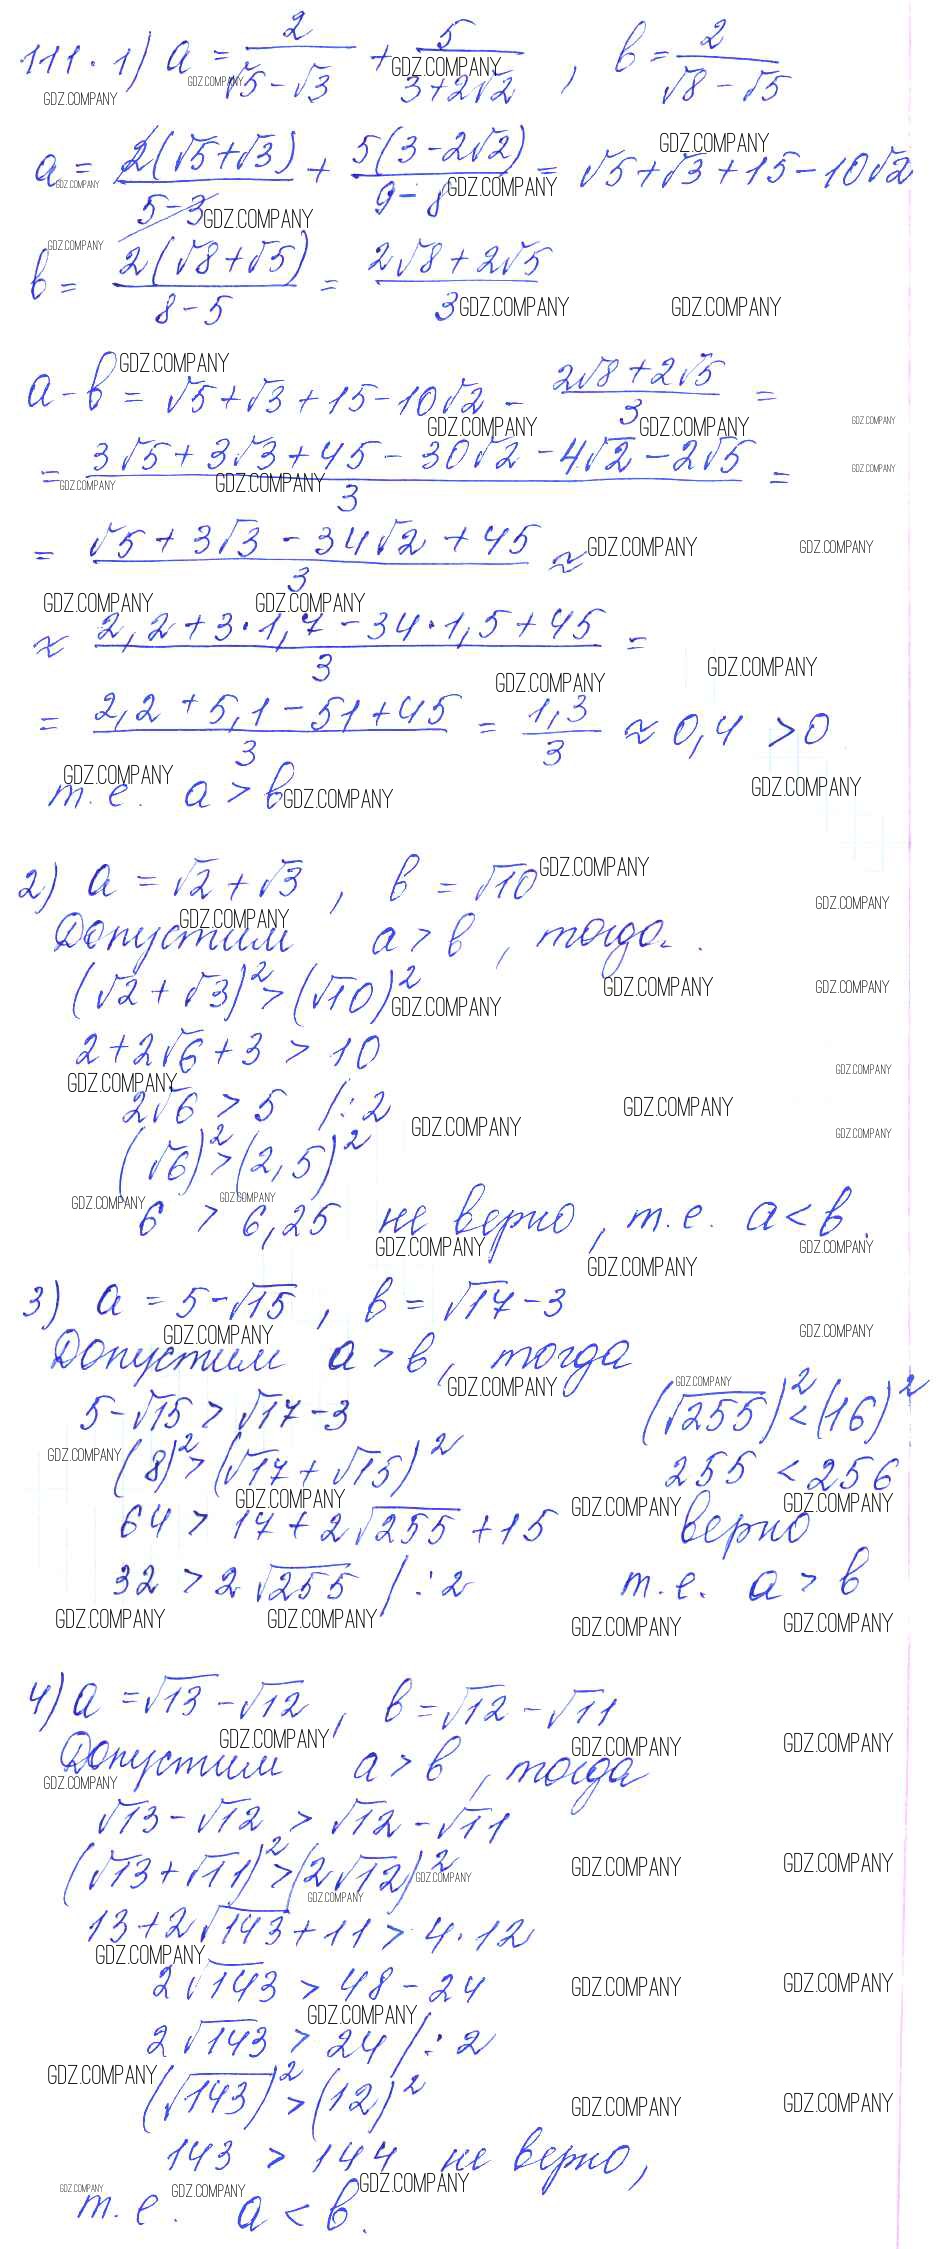 111. 1) a = 2/(√5 − √3) + 5/(3+2√2) , b = 2/(√8 − √5)
a = 2(√5+√3)/(5−3) + 5(3−2√2)/(9−8) = √5+√3+15−10√2
b = 2(√8+√5)/(8−5) = (2√8+2√5)/3
a − b = √5+√3+15−10√2 − (2√8+2√5)/3 =
= (3√5+3√3+45−30√2−4√2−2√5)/3 =
= (√5+3√3−34√2+45)/3 ≈
≈ (2,2+3·1,7−34·1,5+45)/3 =
= (2,2+5,1−51+45)/3 = 1,3/3 ≈ 0,4 > 0
т.е. a > b
2) a = √2+√3 , b = √10
Допустим a > b , тогда.
(√2+√3)² > (√10)²
2+2√6+3 > 10
2√6 > 5 /:2
(√6)² > (2,5)²
6 > 6,25 не верно, т.е. a < b.
3) a = 5−√15 , b = √17−3
Допустим a > b, тогда
5−√15 > √17−3
(8)² > (√17+√15)²
64 > 17+2√255+15
32 > 2√255 /:2
(√255)² < (16)²
255 < 256
верно
т.е. a > b
4) a = √13−√12 , b = √12−√11
Допустим a > b , тогда
√13−√12 > √12−√11
(√13+√11)² > (2√12)²
13+2√143+11 > 4·12
2√143 > 48−24
2√143 > 24 /:2
(√143)² > (12)²
143 > 144 не верно,
т.е. a < b.
GDZ.COMPANY